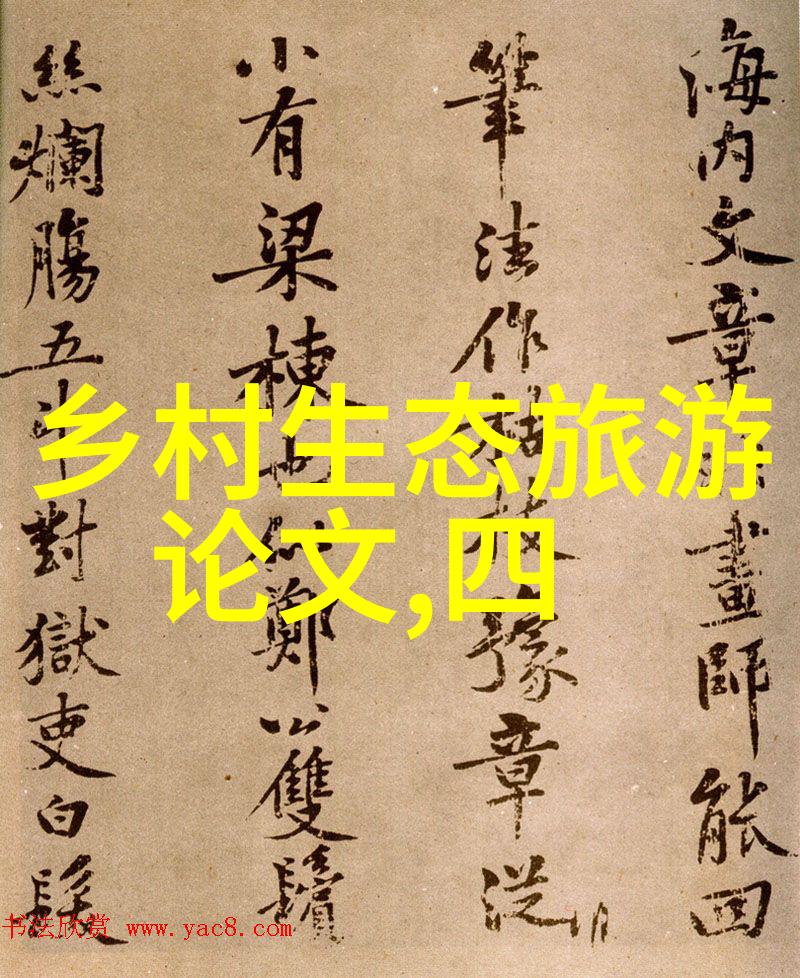 海内文章畫師能回
筆法作枯枝豫章從
小有梁棟也似鄭公雙鬢
絲爛腸五斗對獄吏白髮
乡村生态旅游
论文,四
书法欣赏 www.yac8.com